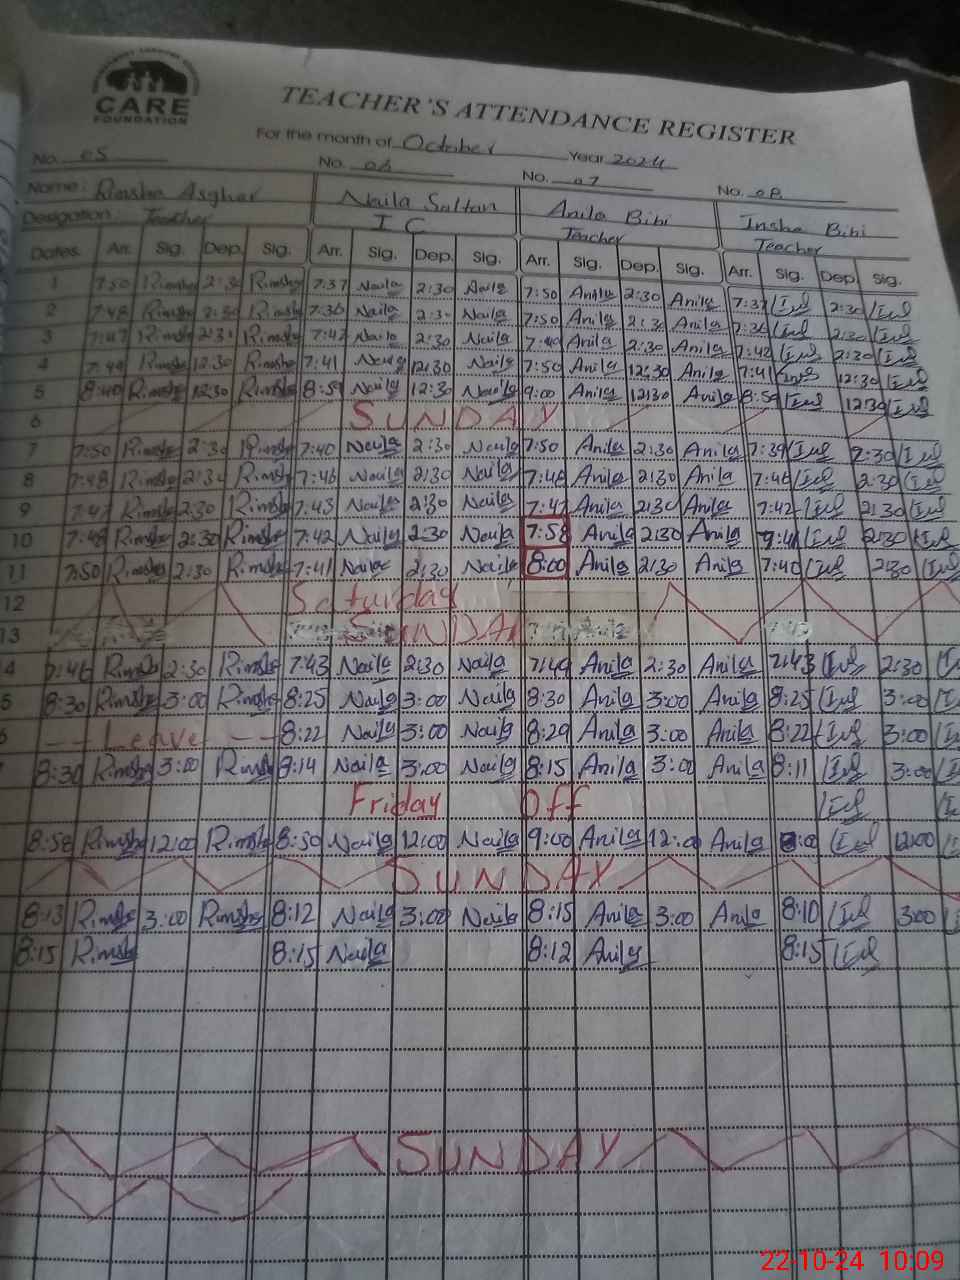 CARE
FOUNDATION
TEACHER'S ATTENDANCE REGISTER
For the month of October Year 2024
No. 05 No. 06 No. 07 No. 08
Name: Rimsha Asghar Naila Saltan Anila Bibi Insha Bibi
Desigation: Teacher I C Teacher Teacher
Dates Arr. Sig. Dep. Sig. Arr. Sig. Dep. Sig. Arr. Sig. Dep. Sig. Arr. Sig. Dep. Sig.
1 7:50 Rimsha 2:30 Rimsha 7:37 Naila 2:30 Naila 7:50 Anila 2:30 Anila 7:37 2:30
2 7:48 Rimsha 2:30 Rimsha 7:36 Naila 2:30 Naila 7:50 Anila 2:30 Anila 7:36 2:30
3 7:47 Rimsha 2:30 Rimsha 7:42 Naila 2:30 Naila 7:49 Anila 2:30 Anila 7:42 2:30
4 7:49 Rimsha 12:30 Rimsha 7:41 Naila 12:30 Naila 7:50 Anila 12:30 Anila 7:41 12:30
5 8:40 Rimsha 12:30 Rimsha 8:59 Naila 12:30 Naila 9:00 Anila 12:30 Anila 8:59 12:30
6 SUNDAY
7 7:50 Rimsha 2:30 Rimsha 7:40 Naila 2:30 Naila 7:50 Anila 2:30 Anila 7:39 2:30
8 7:48 Rimsha 2:30 Rimsha 7:46 Naila 2:30 Naila 7:48 Anila 2:30 Anila 7:46 2:30
9 7:47 Rimsha 2:30 Rimsha 7:43 Naila 2:30 Naila 7:47 Anila 2:30 Anila 7:42 2:30
10 7:48 Rimsha 2:30 Rimsha 7:42 Naila 2:30 Naila 7:58 Anila 2:30 Anila 7:41 2:30
11 7:50 Rimsha 2:30 Rimsha 7:41 Naila 2:30 Naila 8:00 Anila 2:30 Anila 7:40 2:30
12 Saturday
13 SUNDAY
4 7:46 Rimsha 2:30 Rimsha 7:43 Naila 2:30 Naila 7:49 Anila 2:30 Anila 7:43 2:30
5 8:30 Rimsha 3:00 Rimsha 8:25 Naila 3:00 Naila 8:30 Anila 3:00 Anila 8:25 3:00
Leave 8:22 Naila 3:00 Naila 8:29 Anila 3:00 Anila 8:22 3:00
8:30 Rimsha 3:00 Rimsha 8:14 Naila 3:00 Naila 8:15 Anila 3:00 Anila 8:11 3:00
Friday Off
8:58 Rimsha 12:00 Rimsha 8:50 Naila 12:00 Naila 9:00 Anila 12:00 Anila 12:00
SUNDAY
8:13 Rimsha 3:00 Rimsha 8:12 Naila 3:00 Naila 8:15 Anila 3:00 Anila 8:10 3:00
8:15 Rimsha 8:15 Naila 8:12 Anila 8:15
SUNDAY
22-10-24 10:09